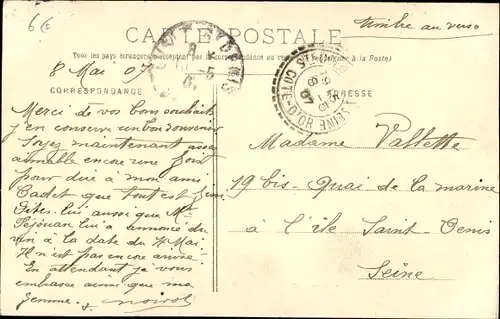 6€
CARTE POSTALE
timbre au verso
Tous les pays étrangers n'acceptent pas la correspondance au recto (se renseigner à la poste)
8 Mai 07
CORRESPONDANCE
ADRESSE
COTE-D'OR
Merci de vos bons souhaits
j'en conserve un bon souvenir.
Soyez maintenant assez
aimable encore une fois
pour dire à mon ami
Cadet que tout est fini
Dites-lui aussi que Mr
Péjouan lui a annoncé du
vin à la date du 4 Mai.
Il n'est pas encore arrivé.
En attendant je vous
embrasse ainsi que ma
femme.
Noirot
Madame Vallette
19 bis - Quai de la marine
à l'île Saint-Denis
Seine